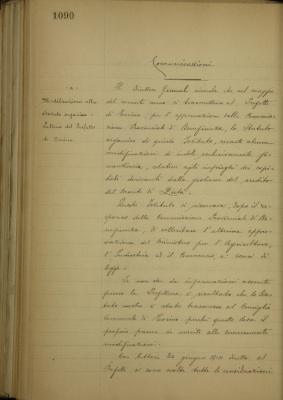 1090
Comunicazioni
- a -
Modificazioni allo
Statuto organico -
Lettera del Prefetto
di Torino.
Il Direttore Generale ricorda che nel maggio
del corrente anno si trasmetteva al Prefetto
di Torino, per l'approvazione della Commis-
sione Provinciale di Beneficenza, lo Statuto
organico di questo Istituto, recante alcune
modificazioni di indole esclusivamente
relative agli impieghi dei capi-
tali derivanti dalla gestione del credito
del Monte di Pietà.
Questo Istituto si riservava, dopo il re-
sponso della Commissione Provinciale di Be-
neficenza, di sollecitare l'ulteriore appro-
vazione del Ministero per l'Agricoltura,
l'Industria ed il Commercio, a sensi di
legge.
Se non che da informazioni assunte
presso la Prefettura è risultato che lo Sta-
tuto nostro è stato trasmesso al Consiglio
Comunale di Torino perchè questo desse il
proprio parere in merito alle
modificazioni.
Con lettera 24 giugno 1911 diretta al
Prefetto si sono svolte tutte le considerazioni